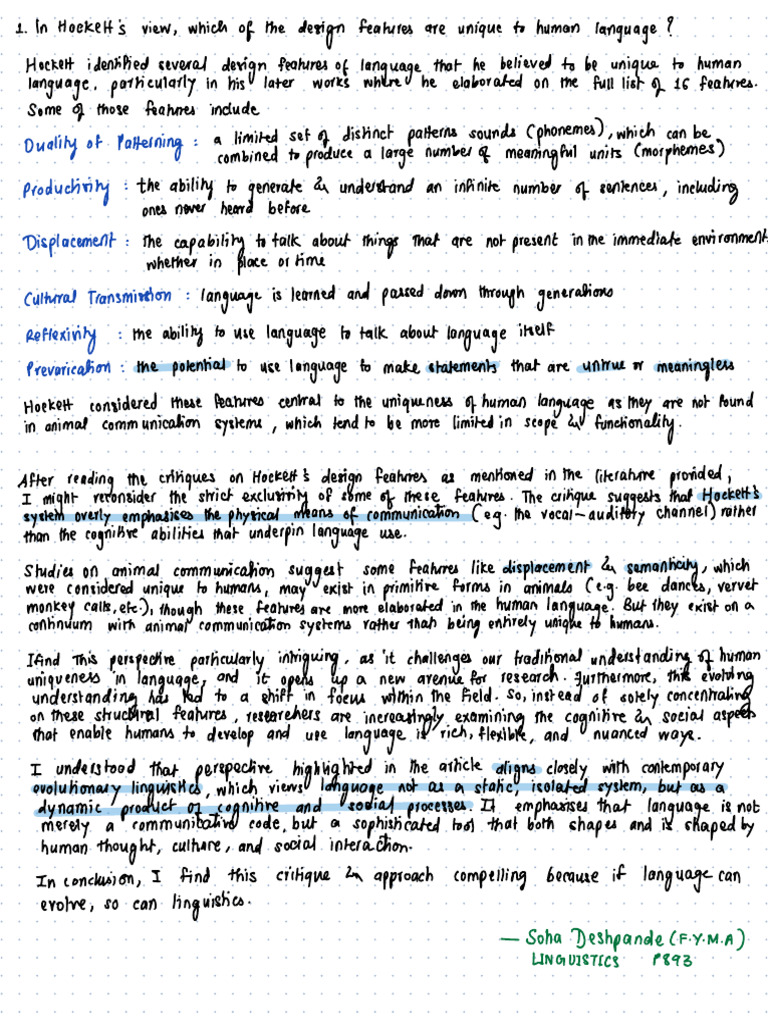 1. In Hockett's view, which of the design features are unique to human language?
Hockett identified several design features of language that he believed to be unique to human
language, particularly in his later works where he elaborated on the full list of 16 features.
Some of those features include
Duality of Patterning : a limited set of distinct patterns sounds (phonemes), which can be
combined to produce a large number of meaningful units (morphemes)
Productivity : the ability to generate & understand an infinite number of sentences, including
ones never heard before
Displacement : The capability to talk about things that are not present in the immediate environment,
whether in place or time
Cultural Transmission : language is learned and passed down through generations
Reflexivity : the ability to use language to talk about language itself
Prevarication : the potential to use language to make statements that are untrue or meaningless
Hockett considered these features central to the uniqueness of human language as they are not found
in animal communication systems, which tend to be more limited in scope & functionality.
After reading the critiques on Hockett's design features as mentioned in the literature provided,
I might reconsider the strict exclusivity of some of these features. The critique suggests that Hockett's
system overly emphasises the physical means of communication (eg. the vocal-auditory channel) rather
than the cognitive abilities that underpin language use.
Studies on animal communication suggest some features like displacement & semanticity, which
were considered unique to humans, may exist in primitive forms in animals (e.g. bee dances, vervet
monkey calls, etc.), though these features are more elaborated in the human language. But they exist on a
continuum with animal communication systems rather than being entirely unique to humans.
I find this perspective particularly intriguing, as it challenges our traditional understanding of human
uniqueness in language, and it opens up a new avenue for research. Furthermore, this evolving
understanding has led to a shift in focus within the field. So, instead of solely concentrating
on these structural features, researchers are increasingly examining the cognitive & social aspects
that enable humans to develop and use language is rich, flexible, and nuanced ways.
I understood that perspective highlighted in the article aligns closely with contemporary
evolutionary linguistics, which views language not as a static, isolated system, but as a
dynamic product of cognitive and social processes. It emphasises that language is not
merely a communicative code, but a sophisticated tool that both shapes and is shaped by
human thought, culture, and social interaction.
In conclusion, I find this critique & approach compelling because if language can
evolve, so can linguistics.
— Soha Deshpande (F.Y.M.A)
LINGUISTICS P893